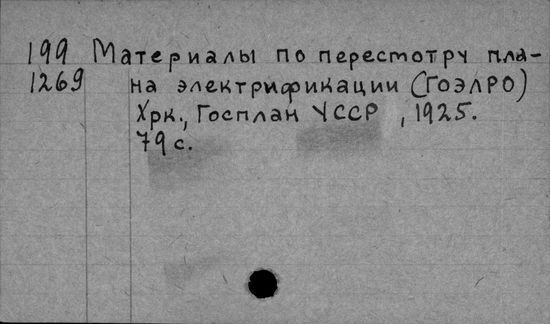 199 Материалы по пересмотру пла-
1269 на электрификации (ГОЭЛРО)
Хрк., Госплан УССР , 1925.
79 с.